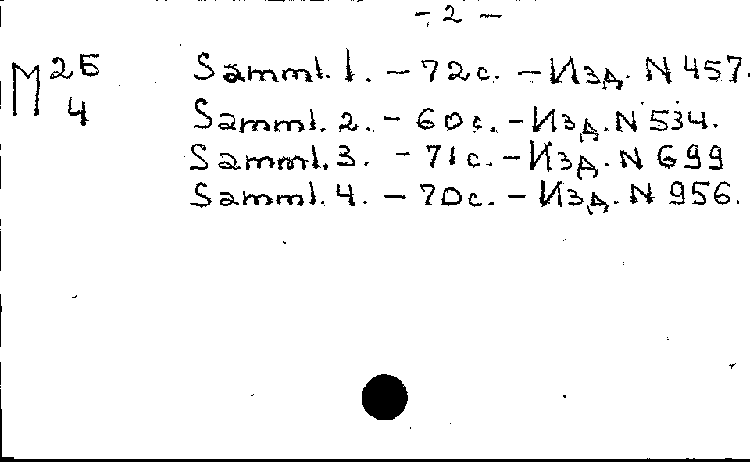 - 2 -
М 25 Samml. 1. - 72 с. - Изд. N 457.
4 Samml. 2. - 60 с. - Изд. N 534.
Samml. 3. - 71 с. - Изд. N 699
Samml. 4. - 70 с. - Изд. N 956.